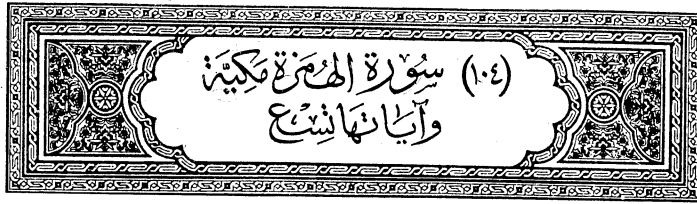 (١٠٤) سُورَةُ الهُمَزَة مَكيَّة
وَآيَاتهَا تِسْع